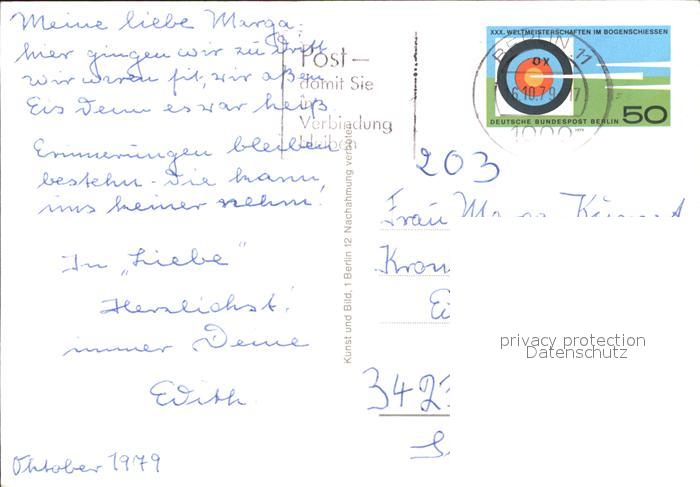 Meine liebe Marga:
hier gingen wir zu dritt
wir waren fit, wir aßen
Eis denn es war heiß.
Erinnerungen bleiben
bestehn. Die kann
uns keiner nehm!
In „Liebe"
Herzlichst!
immer Deine
Edith
Oktober 1979
Post –
damit Sie
in
Verbindung
bleiben
Kunst und Bild, 1 Berlin 12 Nachahmung verboten
XXX. WELTMEISTERSCHAFTEN IM BOGENSCHIESSEN
BERLIN 11
6.10.79
17
1000
DEUTSCHE BUNDESPOST BERLIN 50
1979
203
Frau
Kron
Ei
342
privacy protection
Datenschutz